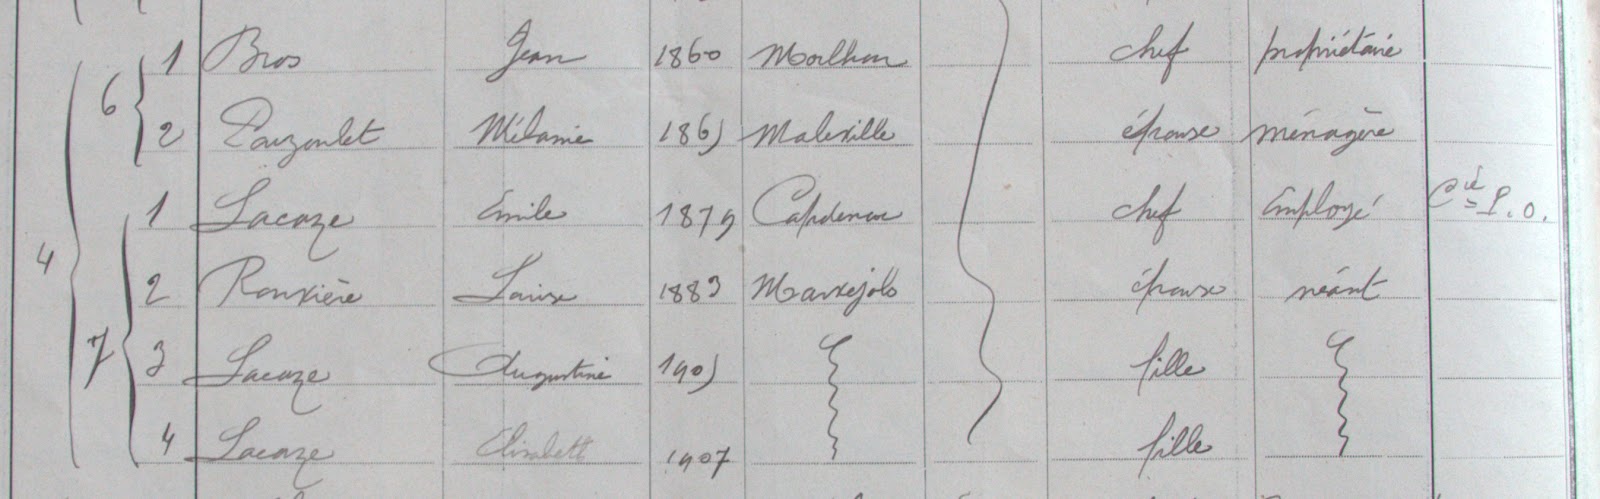 6 1 Bros Jean 1860 Morlhon chef propriétaire
2 Pouzoulet Mélanie 1865 Maleville épouse ménagère
1 Lacaze Emile 1879 Capdenac chef Employé Cie P.O.
4 2 Rouxière Louise 1883 Marvejols épouse néant
7 3 Lacaze Augustine 1905 fille
4 Lacaze Elisabeth 1907 fille